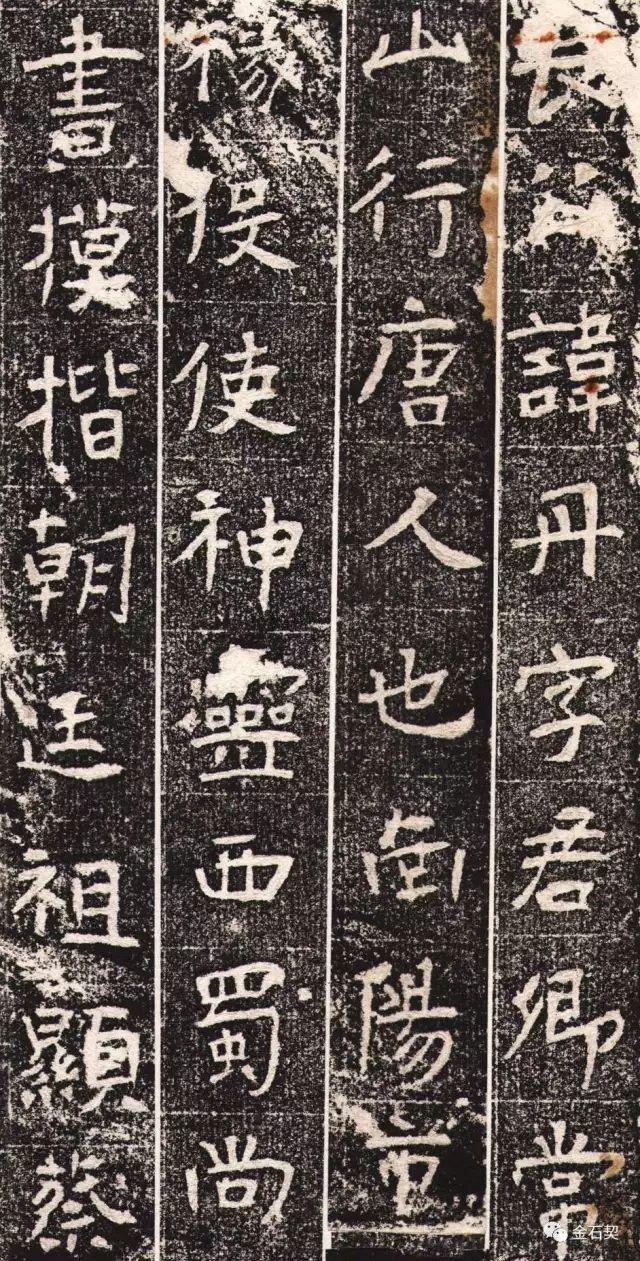 長諱丹字君卿常
山行唐人也陽
役使神靈西蜀尚
書摸揩朝廷祖顯蔡
金石契